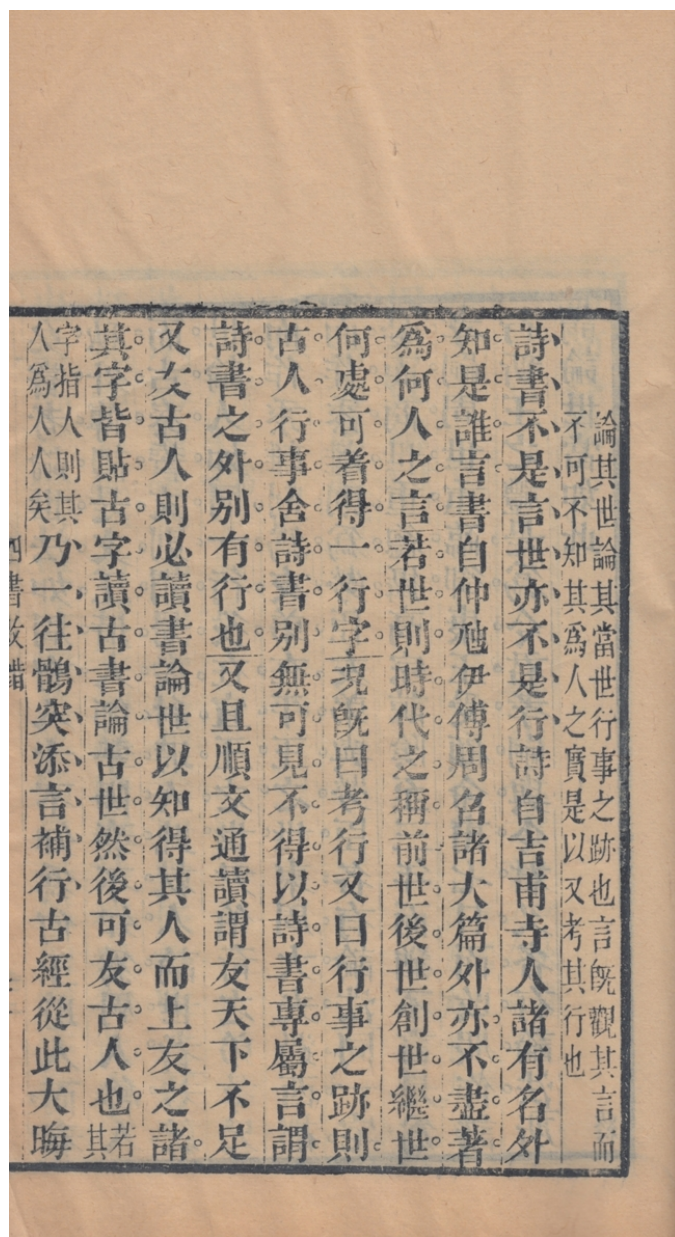 論其世論其當世行事之跡也言旣觀其言而
不可不知其爲人之實是以又考其行也
詩書不是言世亦不是行詩自吉甫寺人諸有名外
知是誰言書自仲虺伊傅周召諸大篇外亦不盡著
爲何人之言若世則時代之稱前世後世創世繼世
何處可着得一行字況旣曰考行又曰行事之跡則
古人行事舍詩書別無可見不得以詩書專屬言謂
詩書之外別有行也又且順文通讀謂友天下不足
又友古人則必讀書論世以知得其人而上友之諸
其字皆貼古字讀古書論古世然後可友古人也若
其
字指人則其
人爲人人矣乃一往鶻突添言補行古經從此大晦
四書改錯